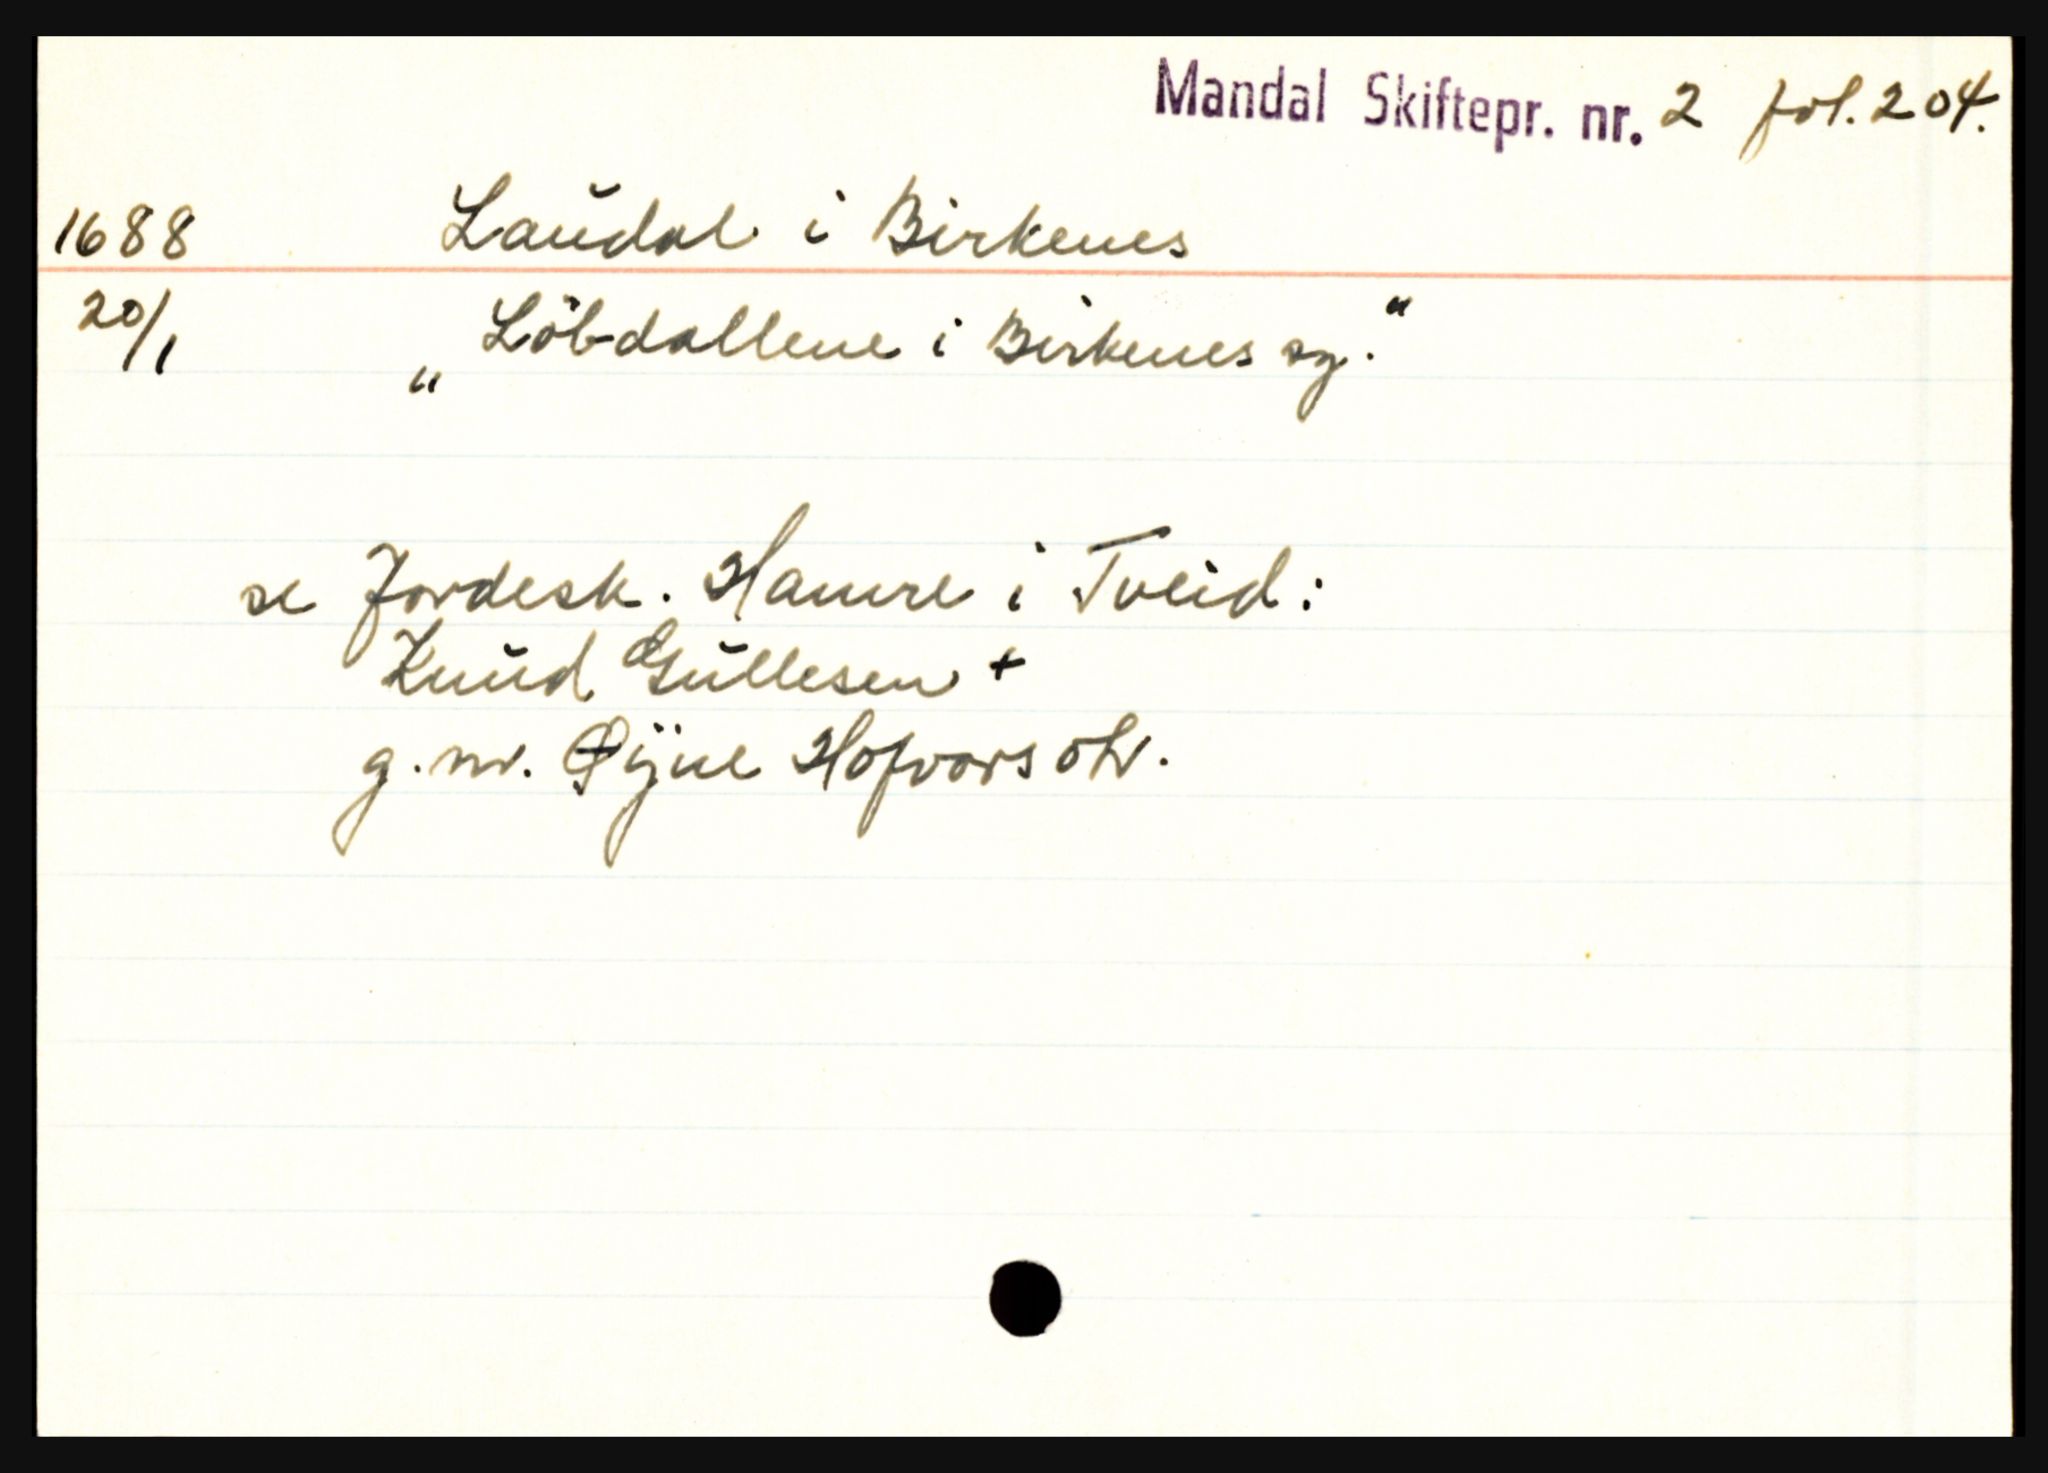 Mandal Skiftepr. nr. 2 fol. 204.
1688 Laudal i Birkenes
20/1 „Löbdallene i Birkenes sg.“
se Jordesk. Hamre i Tveid:
Knud Gullesen +
g.m. Øÿne Hofvorsdtr.